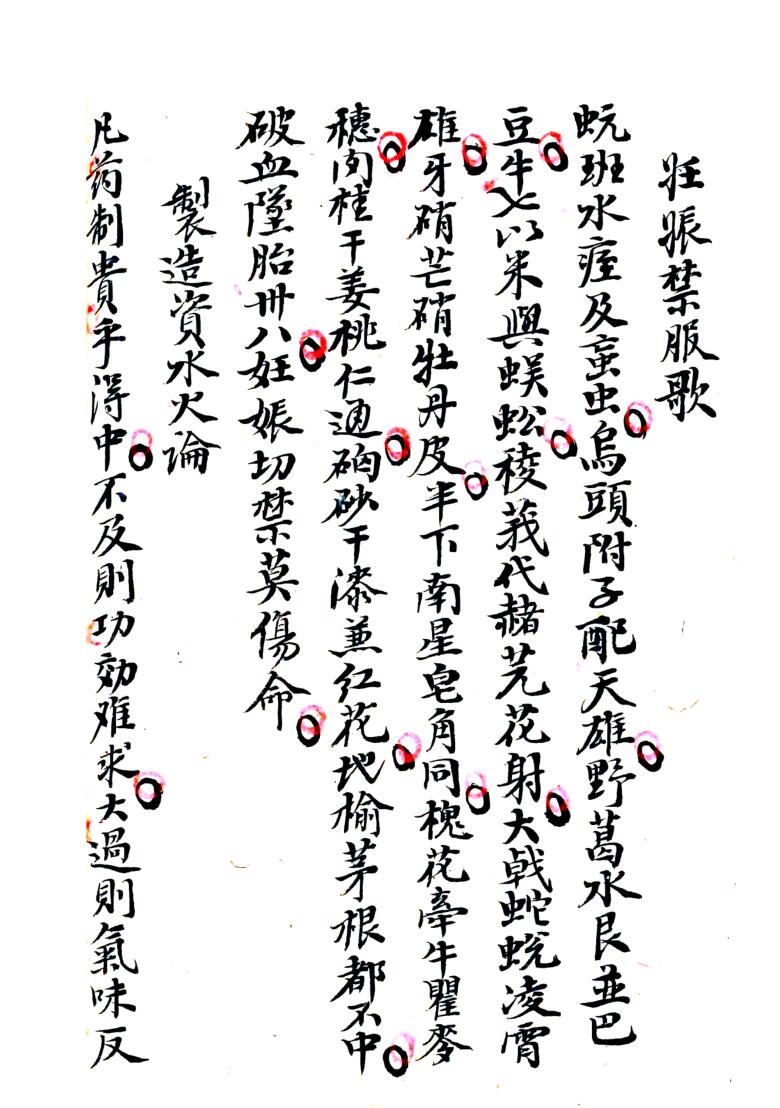 妊娠禁服歌
蚖班水蛭及䖟虫烏頭附子配天雄野葛水艮並巴
豆牛七以米與蜈蚣稜莪代赭芫花射大戟蛇蛻凌霄
雄牙硝芒硝牡丹皮半下南星皂角同槐花牽牛瞿麥
穗肉桂干姜桃仁通硇砂干漆兼紅花地榆茅根都不中
破血墜胎卅八妊娠切禁莫傷命
製造資水火論
凡药制貴乎淂中不及則功効难求大過則氣味反